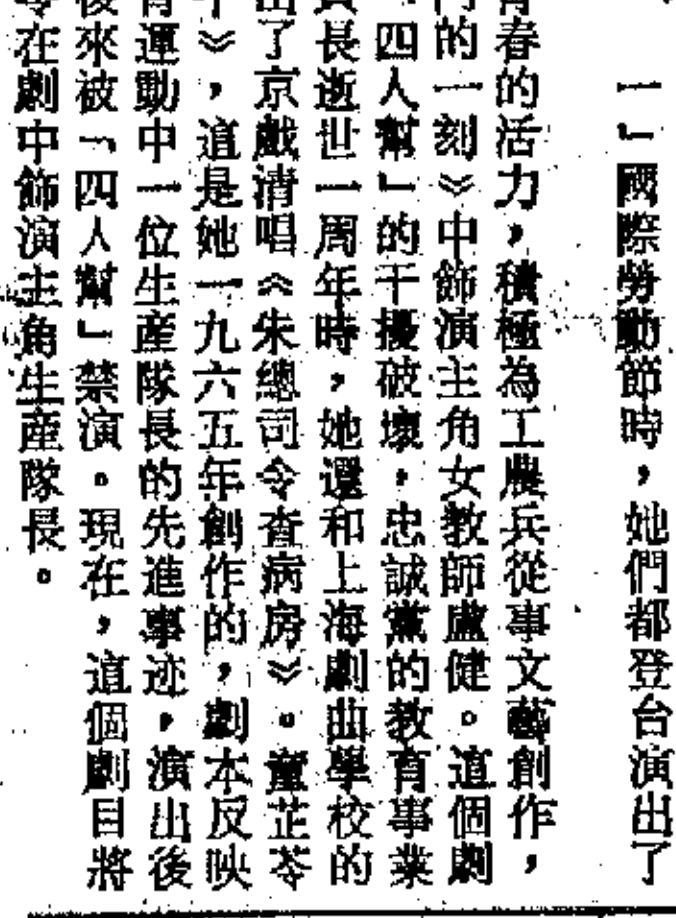 一」國際勞動節時，她們都登台演出了
青春的活力，積極為工農兵從事文藝創作，
的一刻》中飾演主角女教師盧健。這個劇
「四人幫」的干擾破壞，忠誠黨的教育事業
長逝世一周年時，她還和上海劇曲學校的
出了京戲清唱《朱總司令查病房》。童芷苓
》，這是她一九六五年創作的，劇本反映
育運動中一位生產隊長的先進事迹，演出後
後來被「四人幫」禁演。現在，這個劇目將
在劇中飾演主角生產隊長。